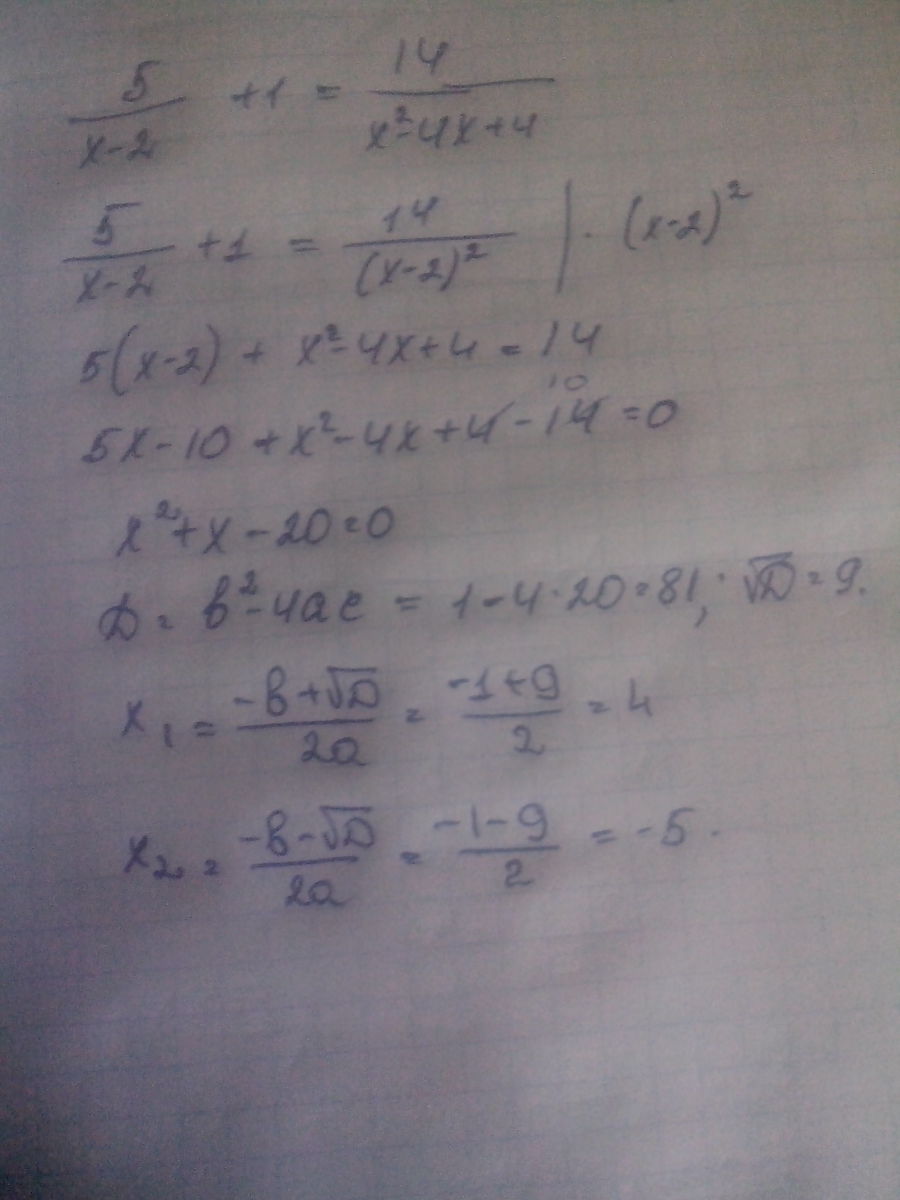 5/(x-2) +1 = 14/(x²-4x+4)
5/(x-2) +1 = 14/(x-2)² | · (x-2)²
5(x-2) + x²-4x+4 = 14
10
5x-10 +x²-4x+4-14=0
x²+x-20=0
D = b²-4ac = 1-4·20=81; √D=9.
x₁ = (-b+√D)/2a = (-1+9)/2 = 4
x₂ = (-b-√D)/2a = (-1-9)/2 = -5.